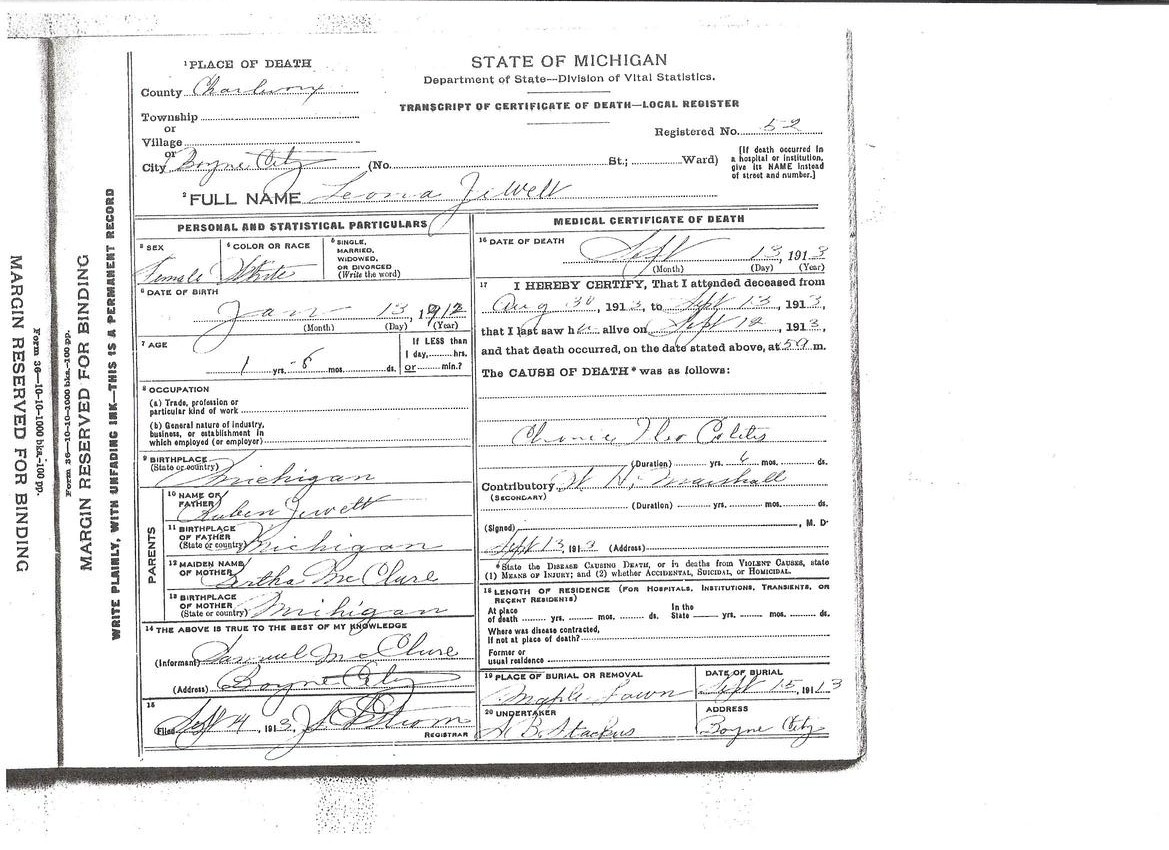 STATE OF MICHIGAN
Department of State—Division of Vital Statistics.
TRANSCRIPT OF CERTIFICATE OF DEATH—LOCAL REGISTER
Registered No. 52
1 PLACE OF DEATH
County Charlevoix
Township
or
Village
or
City Boyne City (No. St.; Ward)
[If death occurred in
a hospital or institution,
give its NAME instead
of street and number.]
2 FULL NAME Leona Jewett
PERSONAL AND STATISTICAL PARTICULARS
3 SEX
Female
4 COLOR OR RACE
White
5 SINGLE,
MARRIED,
WIDOWED,
OR DIVORCED
(Write the word)
6 DATE OF BIRTH
Jan 13, 1912
(Month) (Day) (Year)
7 AGE
1 yrs. 8 mos. ds.
If LESS than
1 day, hrs.
or min.?
8 OCCUPATION
(a) Trade, profession or
particular kind of work
(b) General nature of industry,
business, or establishment in
which employed (or employer)
9 BIRTHPLACE
(State or country) Michigan
PARENTS
10 NAME OF
FATHER Ruben Jewett
11 BIRTHPLACE
OF FATHER
(State or country) Michigan
12 MAIDEN NAME
OF MOTHER Bertha McClure
13 BIRTHPLACE
OF MOTHER
(State or country) Michigan
14 THE ABOVE IS TRUE TO THE BEST OF MY KNOWLEDGE
(Informant) Samuel McClure
(Address) Boyne City
15
Filed Sept 14, 1913
REGISTRAR
MEDICAL CERTIFICATE OF DEATH
16 DATE OF DEATH
Sept 13, 1913
(Month) (Day) (Year)
17 I HEREBY CERTIFY, That I attended deceased from
Aug 30, 1913, to Sept 13, 1913,
that I last saw her alive on Sept 12, 1913,
and that death occurred, on the date stated above, at 5 a m.
The CAUSE OF DEATH* was as follows:
Chronic Ileo Colitis
(Duration) yrs. 6 mos. ds.
Contributory W. H. Marshall
(SECONDARY)
(Duration) yrs. mos. ds.
(Signed) , M. D.
Sept 13, 1913 (Address)
*State the DISEASE CAUSING DEATH, or in deaths from VIOLENT CAUSES, state
(1) MEANS OF INJURY; and (2) whether ACCIDENTAL, SUICIDAL, OR HOMICIDAL.
18 LENGTH OF RESIDENCE (FOR HOSPITALS, INSTITUTIONS, TRANSIENTS, OR
RECENT RESIDENTS)
At place of death yrs. mos. ds. In the State yrs. mos. ds.
Where was disease contracted,
if not at place of death?
Former or
usual residence
19 PLACE OF BURIAL OR REMOVAL
Maple Lawn
DATE OF BURIAL
Sept 15, 1913
20 UNDERTAKER
Stackus
ADDRESS
Boyne City
WRITE PLAINLY, WITH UNFADING INK—THIS IS A PERMANENT RECORD
MARGIN RESERVED FOR BINDING
Form 36—10-10-1000 bks.-100 pp.
MARGIN RESERVED FOR BINDING
Form 36—10-10-1000 bks.-100 pp.